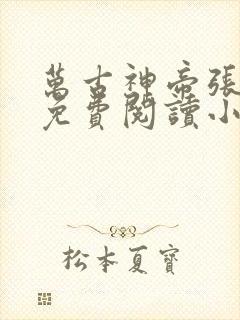 萬古神帝張
免費閱讀小
松本夏寶